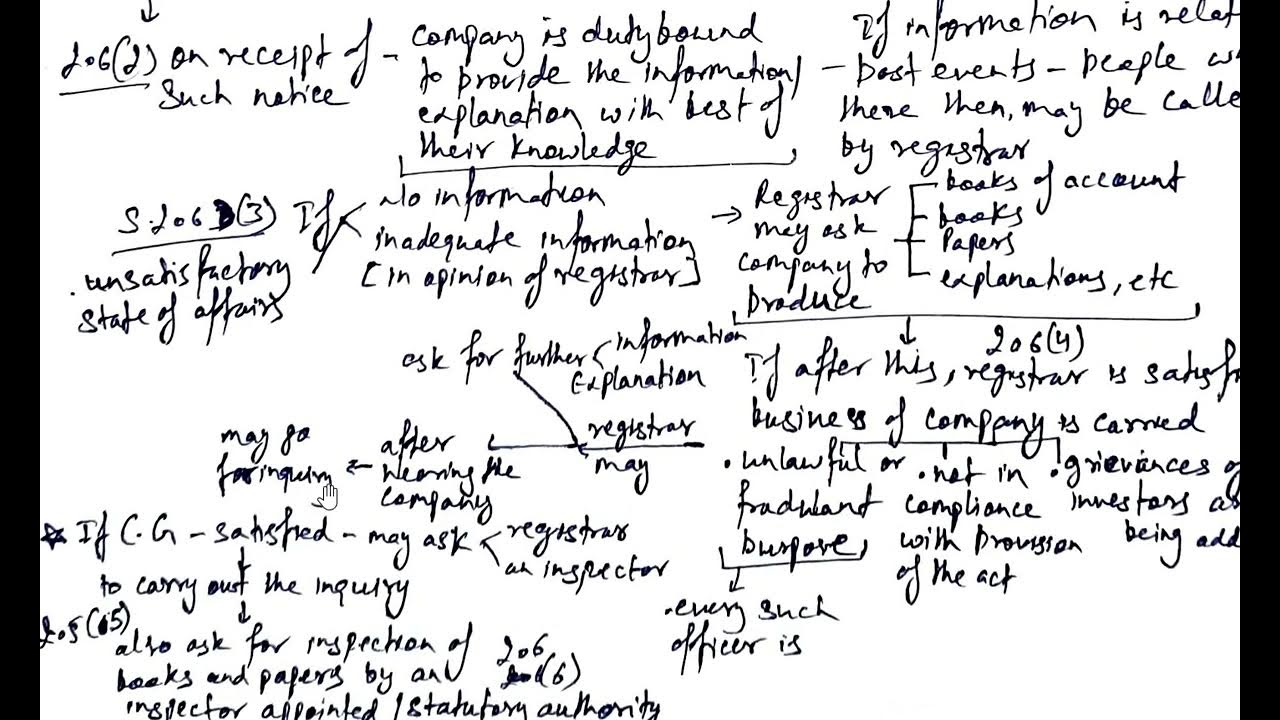 206(2) on receipt of -
such notice
company is dutybound
to provide the information/
explanation with best of
their knowledge
If information is relat
- past events - people w
there then, may be calle
by registrar
S.206 (3) If
unsatisfactory
state of affairs
No information
inadequate information
[in opinion of registrar]
→ Registrar
may ask
company to
produce
books of account
books
papers
explanations, etc
206(4)
If after this, registrar is satisf
business of company is carried
. unlawful or
fradulant
purpose,
. not in
compliance
with provision
of the act
. grievances of
investors a
being add
. every such
officer is
ask for further
information
Explanation
registrar
may
after
hearing the
company
may go
for inquiry
* If C.G - satisfied - may ask
registrar
an inspector
to carry out the inquiry
205(5)
also ask for inspection of
books and papers by an
inspector appointed / statutory authority
206
(6)